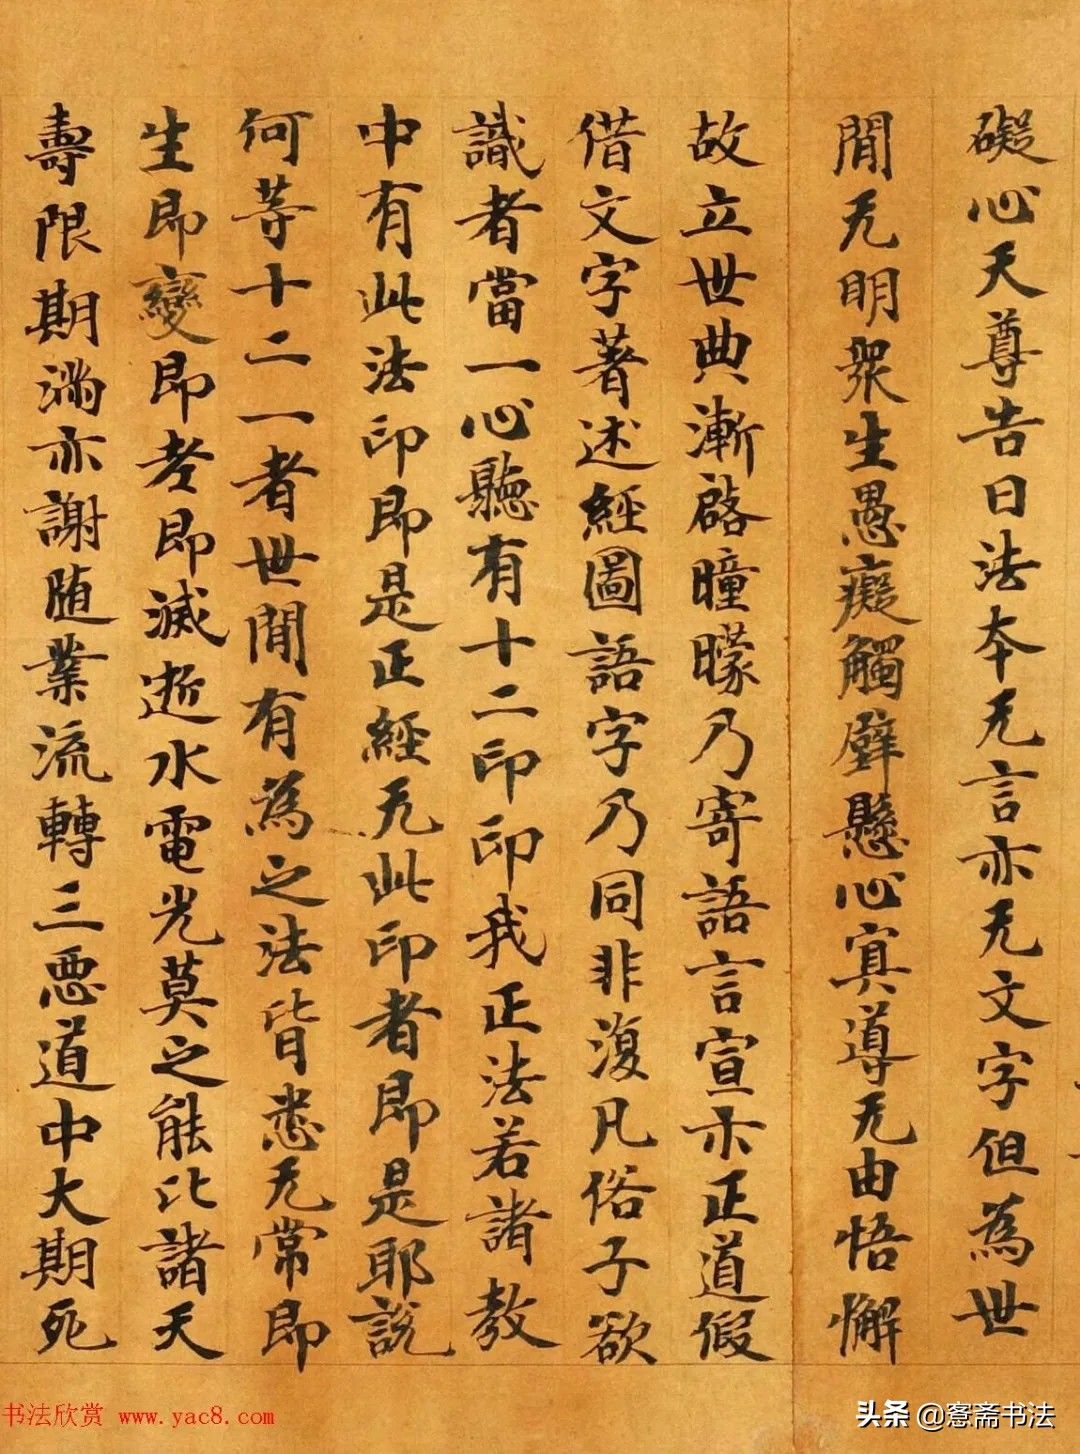 礙心天尊告曰法本无言亦无文字但為世
間无明衆生愚癡觸壁懸心寘導无由悟懈
故立世典漸啓曈曚乃寄語言宣示正道假
借文字著述經圖語字乃同非復凡俗子欲
識者當一心聽有十二印印我正法若諸教
中有此法印即是正經无此印者即是耶說
何等十二一者世間有為之法皆悉无常即
生即變即老即滅逝水電光莫之能比諸天
壽限期滿亦謝随業流轉三惡道中大期死
书法欣赏 www.yac8.com
头条 @窓斋书法